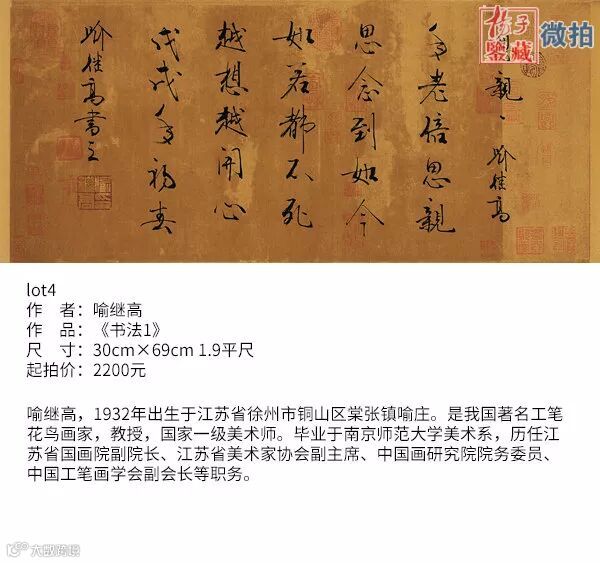 親、喻继高
年老倍思親
思念到如今
如若都不死
越想越開心
戊戌年初春
喻继高書之
微拍
lot4
作 者：喻继高
作 品：《书法1》
尺 寸：30cm×69cm 1.9平尺
起拍价：2200元
喻继高，1932年出生于江苏省徐州市铜山区棠张镇喻庄。是我国著名工笔
花鸟画家，教授，国家一级美术师。毕业于南京师范大学美术系，历任江
苏省国画院副院长、江苏省美术家协会副主席、中国画研究院院务委员、
中国工笔画学会副会长等职务。
大数跨境